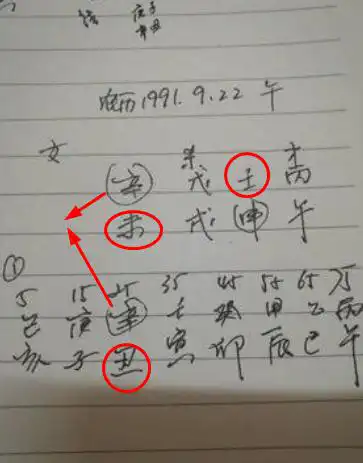 庚子
农历1991.9.22 午
女
辛 戊 壬 丙
未 戌 申 午
①
5 15 25 35 45 55 65 75
己 庚 辛 壬 癸 甲 乙 丙
亥 子 丑 寅 卯 辰 巳 午